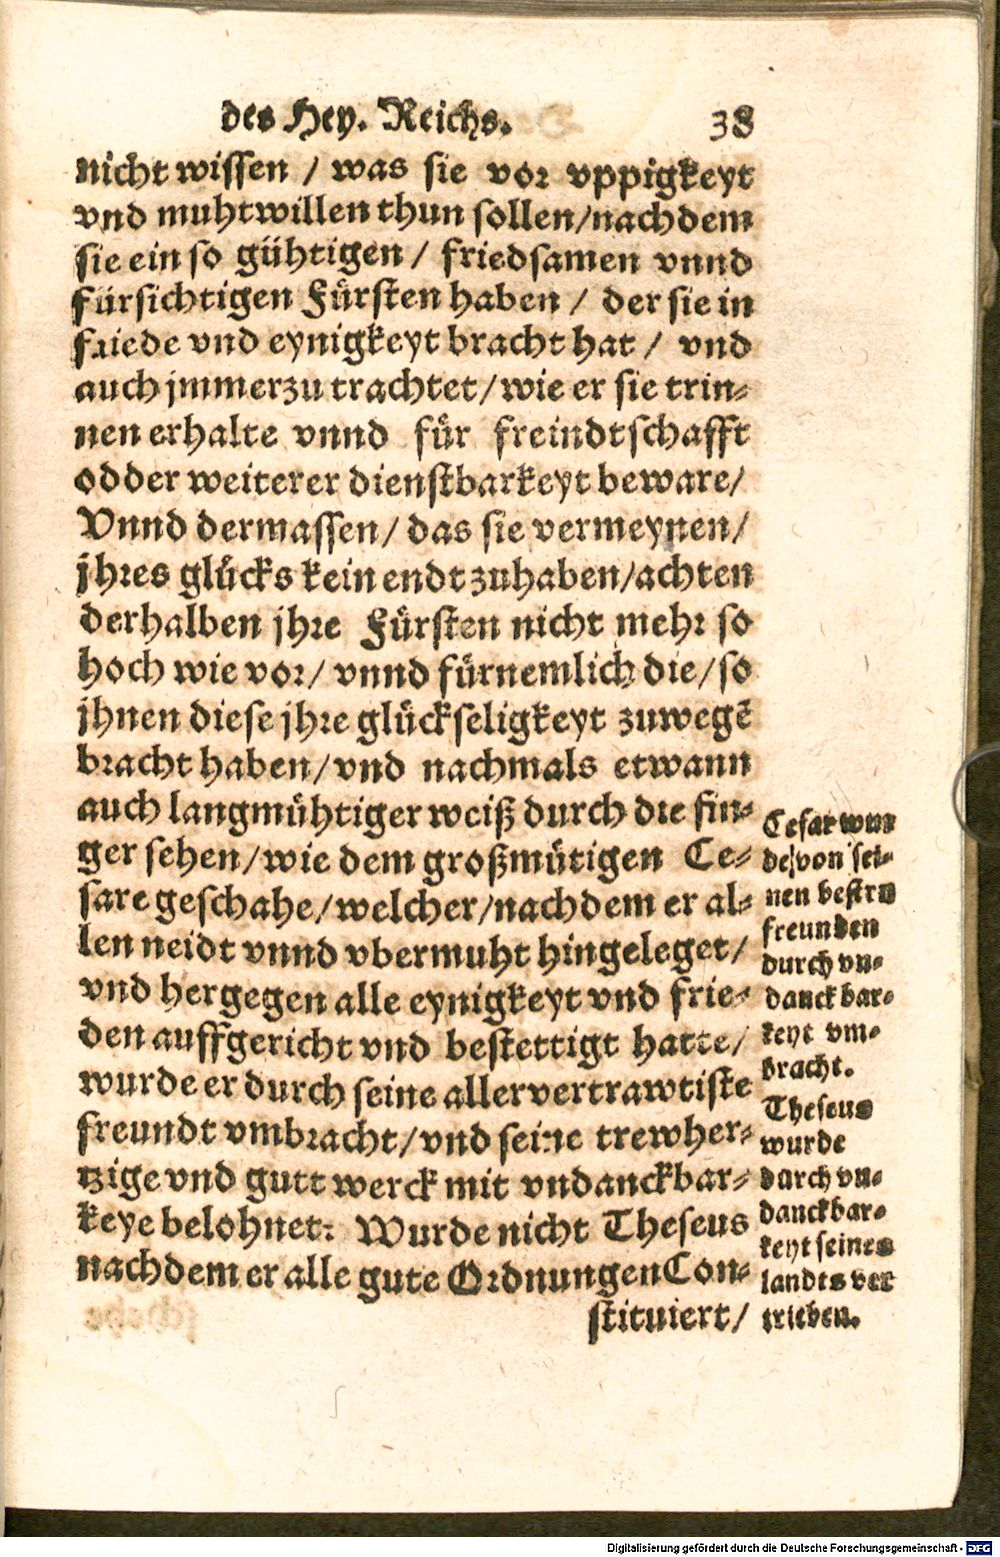 des Hey. Reichs. 38
nicht wissen / was sie vor vppigkeyt
vnd muhtwillen thun sollen/nachdem
sie ein so gühtigen / friedsamen vnnd
fürsichtigen Fürsten haben / der sie in
friede vnd eynigkeyt bracht hat / vnd
auch jmmerzu trachtet/wie er sie trin-
nen erhalte vnnd für freindtschafft
odder weiterer dienstbarkeyt beware/
Vnnd dermassen/ das sie vermeynen/
jhres glücks kein endt zuhaben/achten
derhalben jhre Fürsten nicht mehr so
hoch wie vor/ vnnd fürnemlich die/so
jhnen diese jhre glückseligkeyt zuwegē
bracht haben/vnd nachmals etwann
auch langmühtiger weiß durch die fin-
ger sehen/wie dem großmütigen Ce-
sare geschahe/welcher/nachdem er al-
len neidt vnnd vbermuht hingeleget/
vnd hergegen alle eynigkeyt vnd frie-
den auffgericht vnd bestettigt hatte/
wurde er durch seine allervertrawtiste
freundt vmbracht/vnd seine trewher-
tzige vnd gutt werck mit vndanckbar-
keye belohnet: Wurde nicht Theseus
nachdem er alle gute Ordnungen Con-
stituiert/
Cesar wur
de von sei-
nen bestен
freunden
durch vn-
danckbar-
keyt vm-
bracht.
Theseus
wurde
durch vn-
danckbar-
keyt seines
landts ver
trieben.
Digitalisierung gefördert durch die Deutsche Forschungsgemeinschaft - DFG